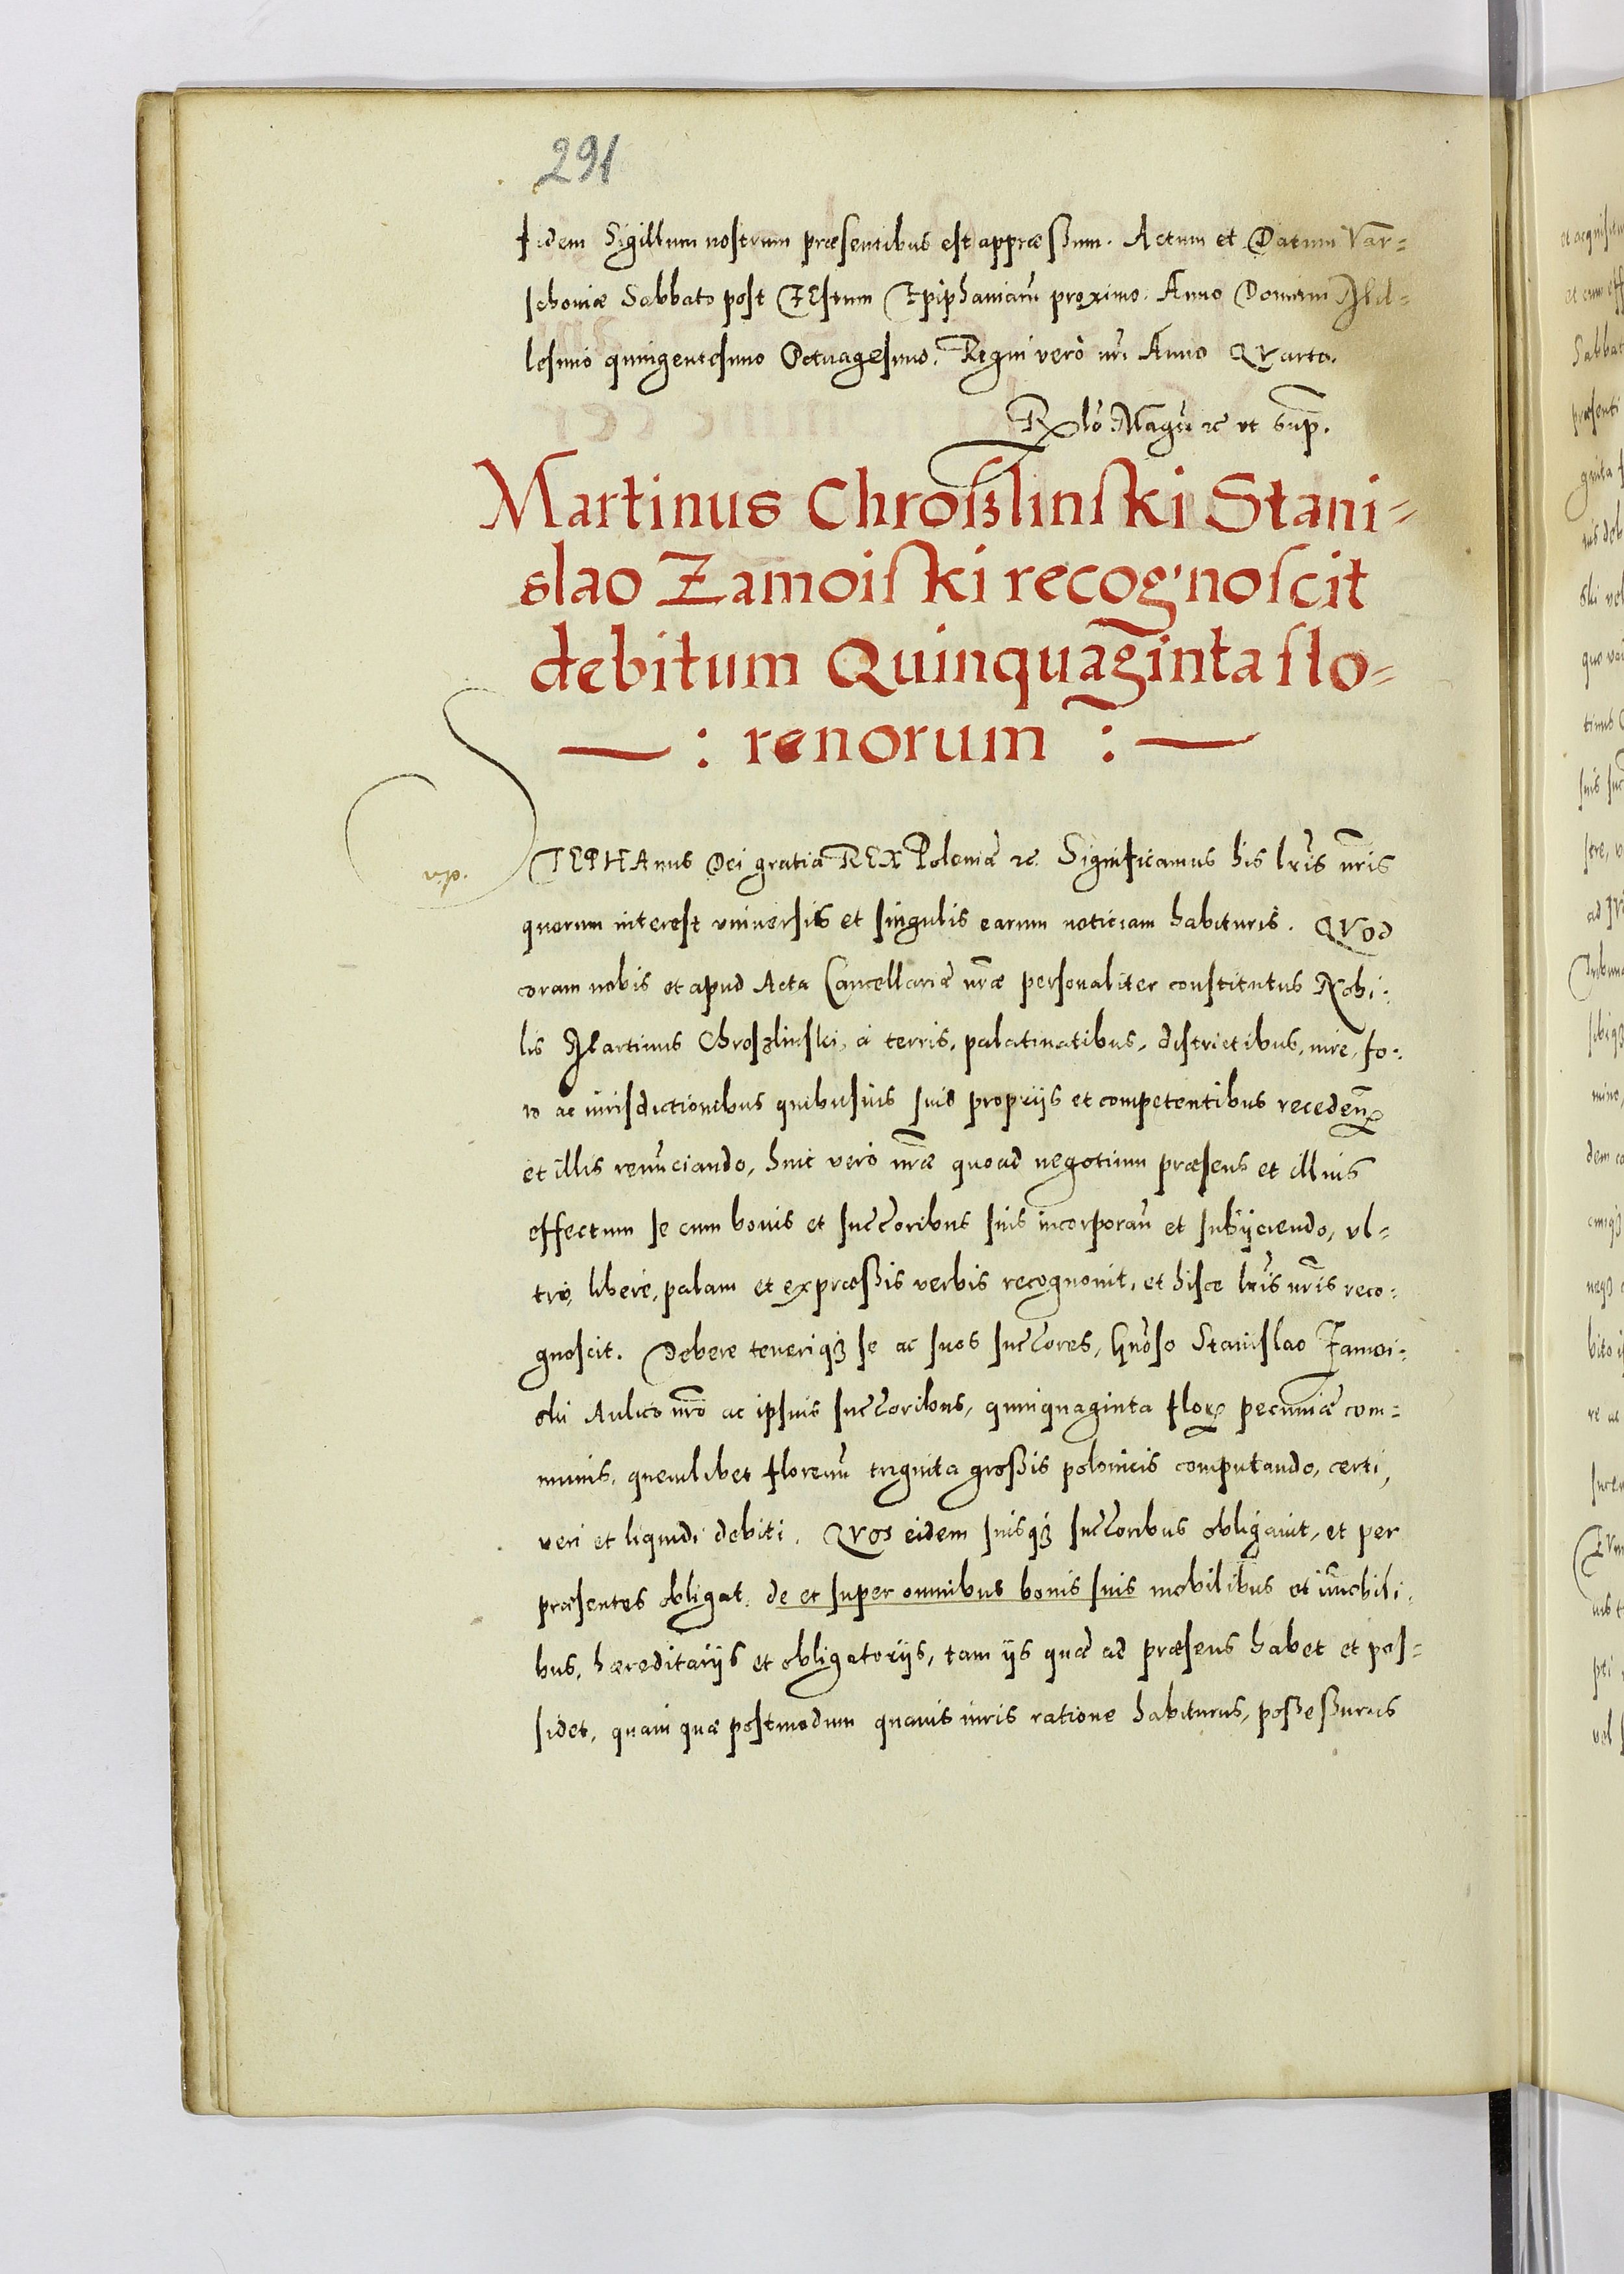 291
fidem Sigillum nostrum præsentibus est appræssum. Actum et Datum Var=
schoviæ Sabbato post FEstum Epiphaniarũ proximo. Anno Domini Mil=
lesimo quingentesimo Octuagesimo. Regni verò nri Anno QVarto.
Rlõ Magci ꝛc ut sup.
Martinus Chroszlinski Stani=
slao Zamoiski recognoscit
debitum Quinquaginta flo=
: renorum :
STEPHAnus Dei gratia REX Poloniæ ꝛc. Significamus his lris nris
quorum interest vniversis et singulis earum noticiam habituris. QVod
coram nobis et apud Acta Cancellariæ nræ personaliter constitutus Nobi:
lis Martinus Chroszlinski, à terris, palatinatibus, districtibus, iure, fo:
ro ac iurisdictionibus quibusuis suis proprijs et competentibus receden̄
et illis renunciando, huic verò nræ quoad negotium præsens et illius
effectum se cum bonis et succoribus suis incorporan̄ et subijciendo, ul=
trò, libere, palam et expræssis verbis recognouit, et hisce lris nris reco:
gnoscit. Debere teneriqꝫ se ac suos succores, Gnõso Stanislao Zamoi:
ski Aulico nro ac ipsius succoribus, quinquaginta flor pecuniæ com=
munis, quemlibet florenũ triginta grossis polonicis computando, certi,
veri et liquidi debiti. QVos eidem suisqꝫ succoribus obligauit, et per
præsentes obligat. de et super omnibus bonis suis mobilibus et im̄obili:
bus, hæreditarijs et obligatorijs, tam ijs quæ ad præsens habet et pos=
sidet, quam quæ postmodum quauis iuris ratione habiturus, possessurus